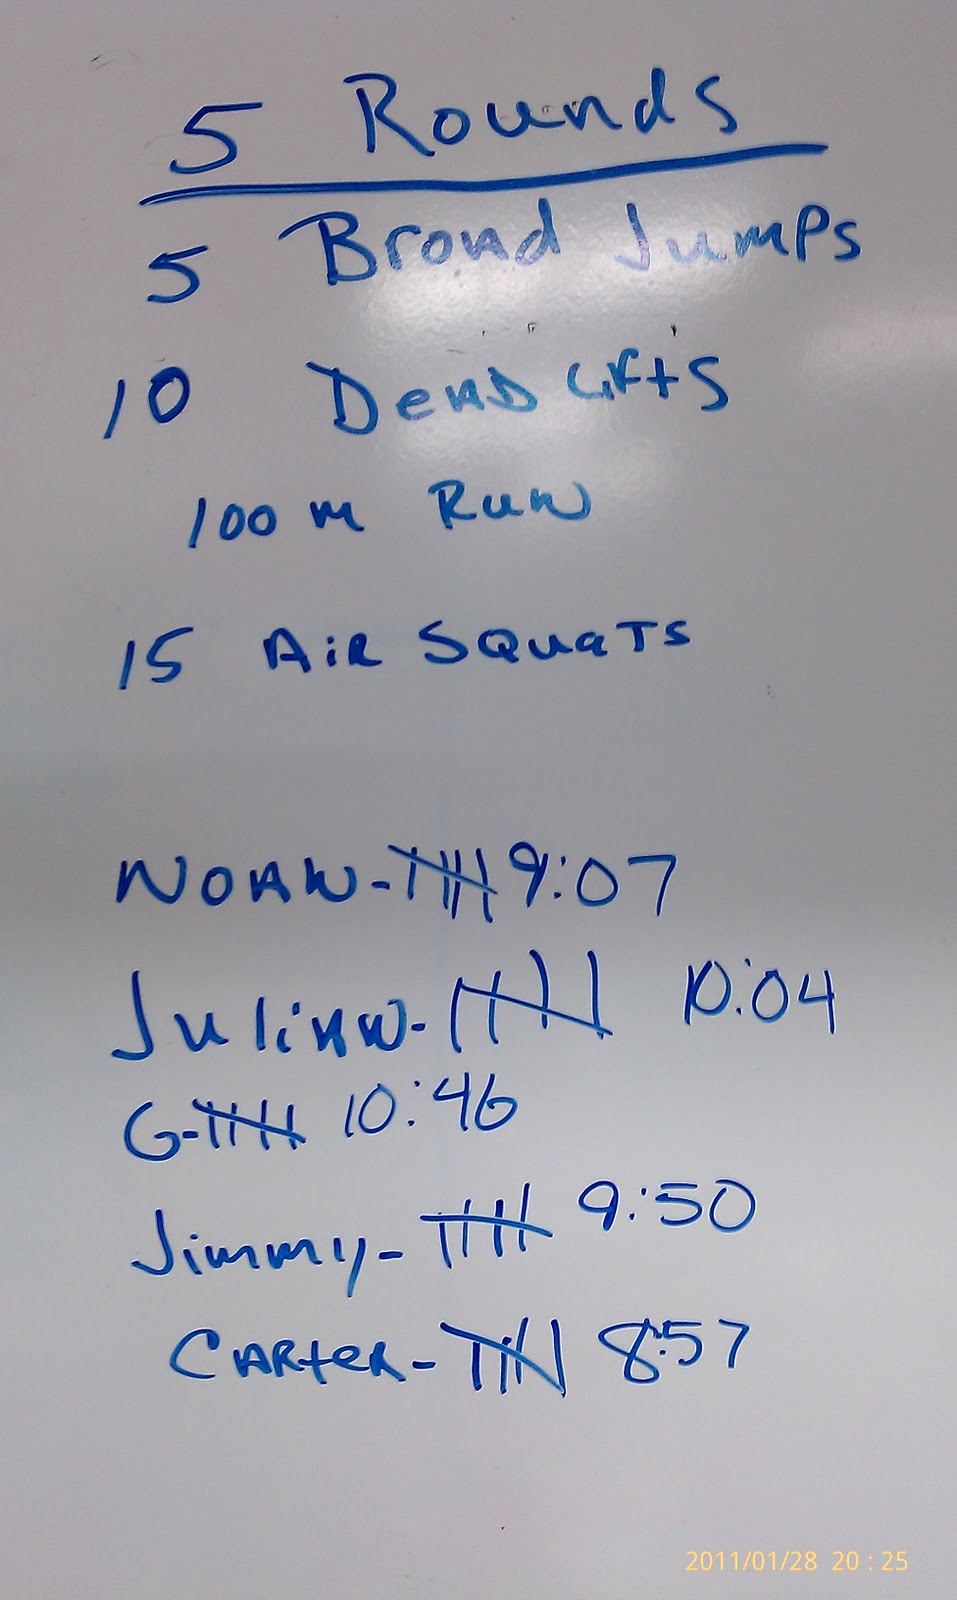 5 Rounds
5 Broad Jumps
10 Dead Lifts
100 m Run
15 Air Squats
Noah - 9:07
Julian - 10:04
G - 10:46
Jimmy - 9:50
Carter - 8:57
2011/01/28 20:25